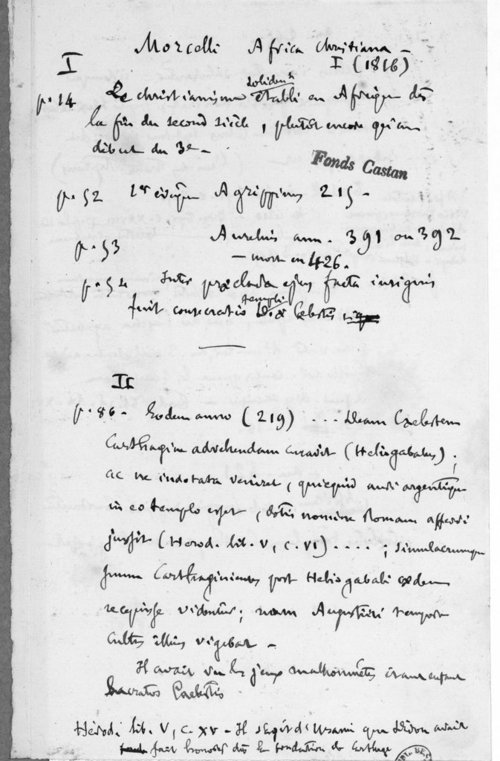 Morcelli Africa Christiana -
I I (1816)
solidement
p. 14 Le christianisme établi en Afrique dès
la fin du second siècle, plutôt encore qu'au
début du 3e -
Fonds Castan
p. 52 1er évêq. Agrippinus 215 -
p. 53 Aurelius ann. 391 ou 392
- mort en 426.
p. 54 Inter præclara ejus facta insignis
templi
fuit consecratio Cælestis
II
p. 86 - Eodem anno (219) .... Deam Cælestem
Carthagine advehendam curavit (Heliogabalus);
ac ne indotata veniret, quicquid auri argentique
in eo templo esset, dotis nomine Romam afferri
jussit (Herod. lib. V, c. VI) ....; simulacrumque
suum Carthaginienses post Heliogabali cædem
recepisse videntur; nam Augustini tempore
cultus illius vigebat -
Il avait vu les jeux malhonnêtes étant enfant
Sacratos Cælestis
Herod. lib. V, c. XV - Il s'agit d'Urani que Didon avait
fait honorer dès la fondation de Carthage